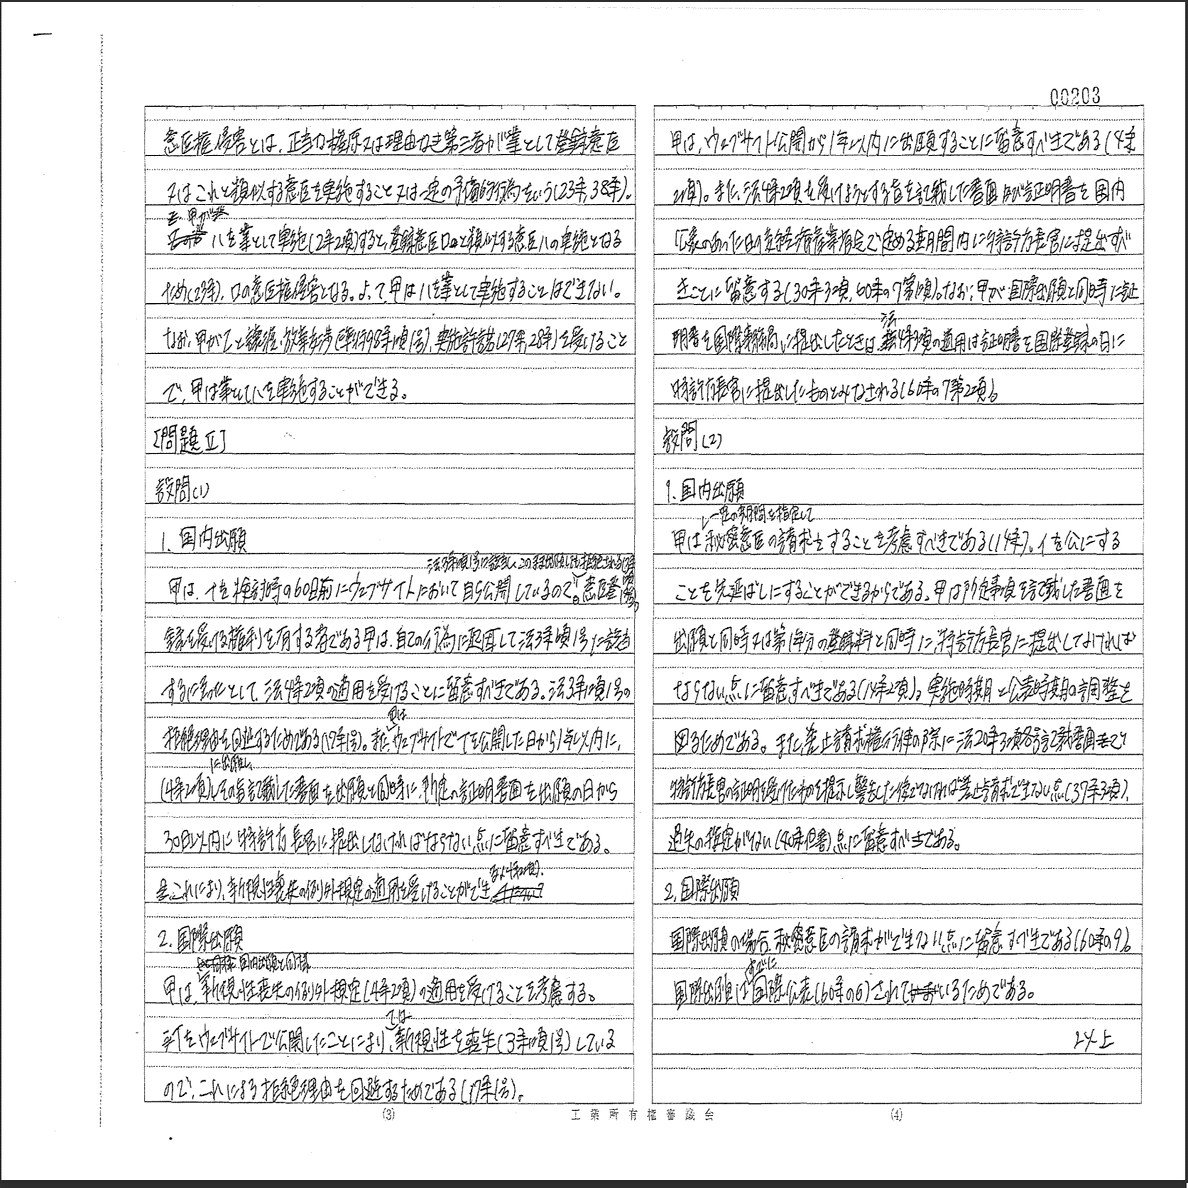 00203
意匠権侵害とは、正当な権原又は理由なき第三者が業として登録意匠
又はこれと類似する意匠を実施すること又は一定の予備的行為をいう(23条、38条)。
甲が業
ハを業として実施(2条2項)すると、登録意匠ロと類似する意匠ハの実施となる
ため(23条)、ロの意匠権侵害となる。よって、甲はハを業として実施することはできない。
なお、甲が乙と譲渡・放棄交渉(準特98条1項1号)、実施許諾(27条、28条)を受けること
で、甲は業としてハを実施することができる。
[問題Ⅱ]
設問(1)
1. 国内出願
法3条1項1号に該当し、このまま出願しても拒絶される
甲は、イを検討時の60日前にウェブサイトにおいて自ら公開しているので、意匠登
録を受ける権利を有する者である甲は、自己の行為に起因して法3条1項1号に該当
するに至ったとして、法4条2項の適用を受けることに留意すべきである。法3条1項1号の
拒絶理由を回避するためである(17条1号)。また、ウェブサイトでイを公開した日から1年以内に、
に出願し
(4条2項)、その旨記載した書面を出願と同時に、所定の証明書面を出願の日から
30日以内に特許庁長官に提出しなければならない点に留意すべきである。
これにより、新規性喪失の例外規定の適用を受けることができ
2. 国際出願
国内出願と同様
甲は、新規性喪失の例外規定(4条2項)の適用を受けることを考慮する。
では
イをウェブサイトで公開したことにより、新規性を喪失(3条1項1号)している
ので、これによる拒絶理由を回避するためである(17条1号)。
(3)
甲は、ウェブサイト公開から1年以内に出願することに留意すべきである(4条
2項)。また、法4条2項を受けようとする旨を記載した書面及び証明書を国際
公表のあった日の後経済産業省令で定める期間内に特許庁長官に提出すべ
きことに留意する(30条3項、60条の7第1項)。なお、甲が国際出願と同時に証
法
明書を国際事務局に提出したときは、4条3項の適用は証明書を国際登録の日に
特許庁長官に提出したものとみなされる(60条の7第2項)。
設問(2)
1. 国内出願
一定の期間を指定して
甲は秘密意匠の請求をすることを考慮すべきである(14条)。イを公にする
ことを先延ばしにすることができるからである。甲は所定事項を記載した書面を
出願と同時又は第1年分の登録料と同時に、特許庁長官に提出しなければ
ならない点に留意すべきである(14条2項)。実施時期と公表時期の調整を
図るためである。また、差止請求権行使の際に法20条3項各号記載書面であって
特許庁長官の証明を受けたものを提示し警告した後でなければ差止請求できない点(37条3項)、
過失の推定がない(40条但書)点に留意すべきである。
2. 国際出願
国際出願の場合、秘密意匠の請求ができない点に留意すべきである(60条の9)。
すでに
国際出願は国際公表(60条の6)されているためである。
以上
工業所有権審議会
(4)